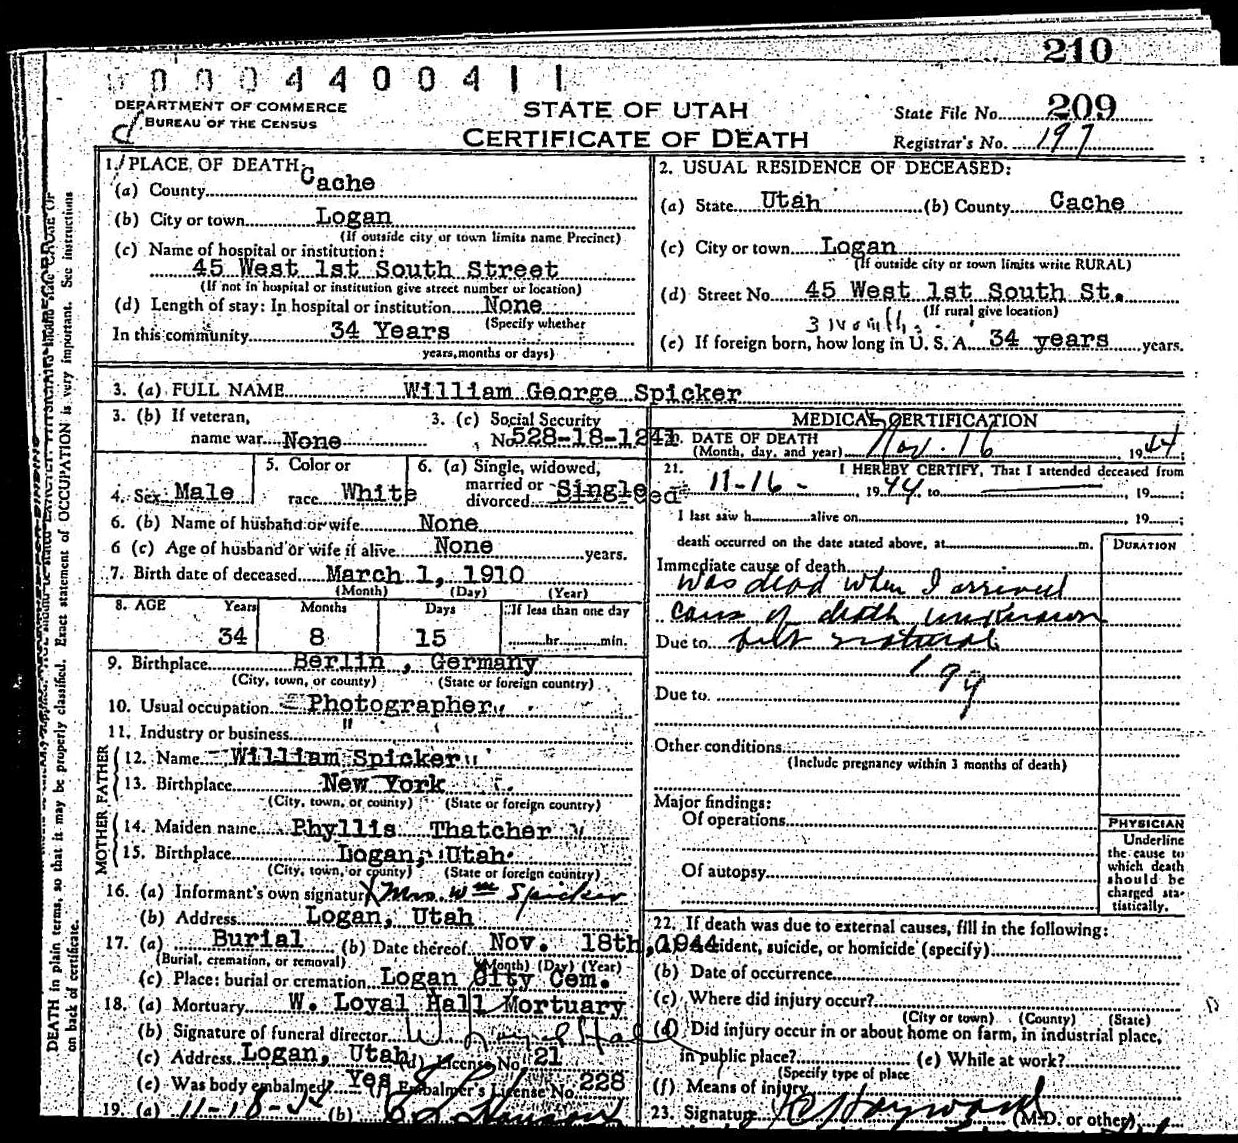 210
0 0 0 4 4 0 0 4 1 1
DEPARTMENT OF COMMERCE
BUREAU OF THE CENSUS
STATE OF UTAH
CERTIFICATE OF DEATH
State File No. 209
Registrar's No. 197
1. PLACE OF DEATH:
(a) County Cache
(b) City or town Logan
(If outside city or town limits name Precinct)
(c) Name of hospital or institution:
45 West 1st South Street
(If not in hospital or institution give street number or location)
(d) Length of stay: In hospital or institution None
(Specify whether
In this community 34 Years
years, months or days)
2. USUAL RESIDENCE OF DECEASED:
(a) State Utah (b) County Cache
(c) City or town Logan
(If outside city or town limits write RURAL)
(d) Street No. 45 West 1st South St.
(If rural give location)
3 months
(e) If foreign born, how long in U. S. A. 34 years years.
3. (a) FULL NAME William George Spicker
3. (b) If veteran,
name war None
3. (c) Social Security
No. 528-18-1241
4. Sex Male
5. Color or
race White
6. (a) Single, widowed,
married or
divorced Single
6. (b) Name of husband or wife None
6 (c) Age of husband or wife if alive None years.
7. Birth date of deceased March 1, 1910
(Month) (Day) (Year)
8. AGE Years Months Days If less than one day
34 8 15 hr. min.
9. Birthplace Berlin, Germany
(City, town, or county) (State or foreign country)
10. Usual occupation Photographer
11. Industry or business "
FATHER
12. Name William Spicker
13. Birthplace New York
(City, town, or county) (State or foreign country)
MOTHER
14. Maiden name Phyllis Thatcher
15. Birthplace Logan, Utah
(City, town, or county) (State or foreign country)
16. (a) Informant's own signature X Mrs. Wm Spicker
(b) Address Logan, Utah
17. (a) Burial (b) Date thereof Nov. 18th, 1944
(Burial, cremation, or removal) (Month) (Day) (Year)
(c) Place: burial or cremation Logan City Cem.
18. (a) Mortuary W. Loyal Hall Mortuary
(b) Signature of funeral director W. Loyal Hall
(c) Address Logan, Utah (d) License No. 21
(e) Was body embalmed? Yes (f) Embalmer's License No. 228
19. (a) 11-18- (b)
MEDICAL CERTIFICATION
20. DATE OF DEATH
(Month, day, and year) Nov. 16 1944;
21. I HEREBY CERTIFY, That I attended deceased from
11-16- , 1944, to , 19 ;
I last saw h alive on , 19 ;
death occurred on the date stated above, at m.
DURATION
Immediate cause of death
Was dead when I arrived
cause of death unknown
Due to felt natural
199
Due to
Other conditions
(Include pregnancy within 3 months of death)
Major findings:
Of operations
Of autopsy
PHYSICIAN
Underline
the cause to
which death
should be
charged sta-
tistically.
22. If death was due to external causes, fill in the following:
(a) Accident, suicide, or homicide (specify)
(b) Date of occurrence
(c) Where did injury occur?
(City or town) (County) (State)
(d) Did injury occur in or about home on farm, in industrial place,
in public place? (e) While at work?
(Specify type of place
(f) Means of injury
23. Signature Hayward (M.D. or other)
DEATH in plain terms, so that it may be properly classified. Exact statement of OCCUPATION is very important. See instructions
on back of certificate.